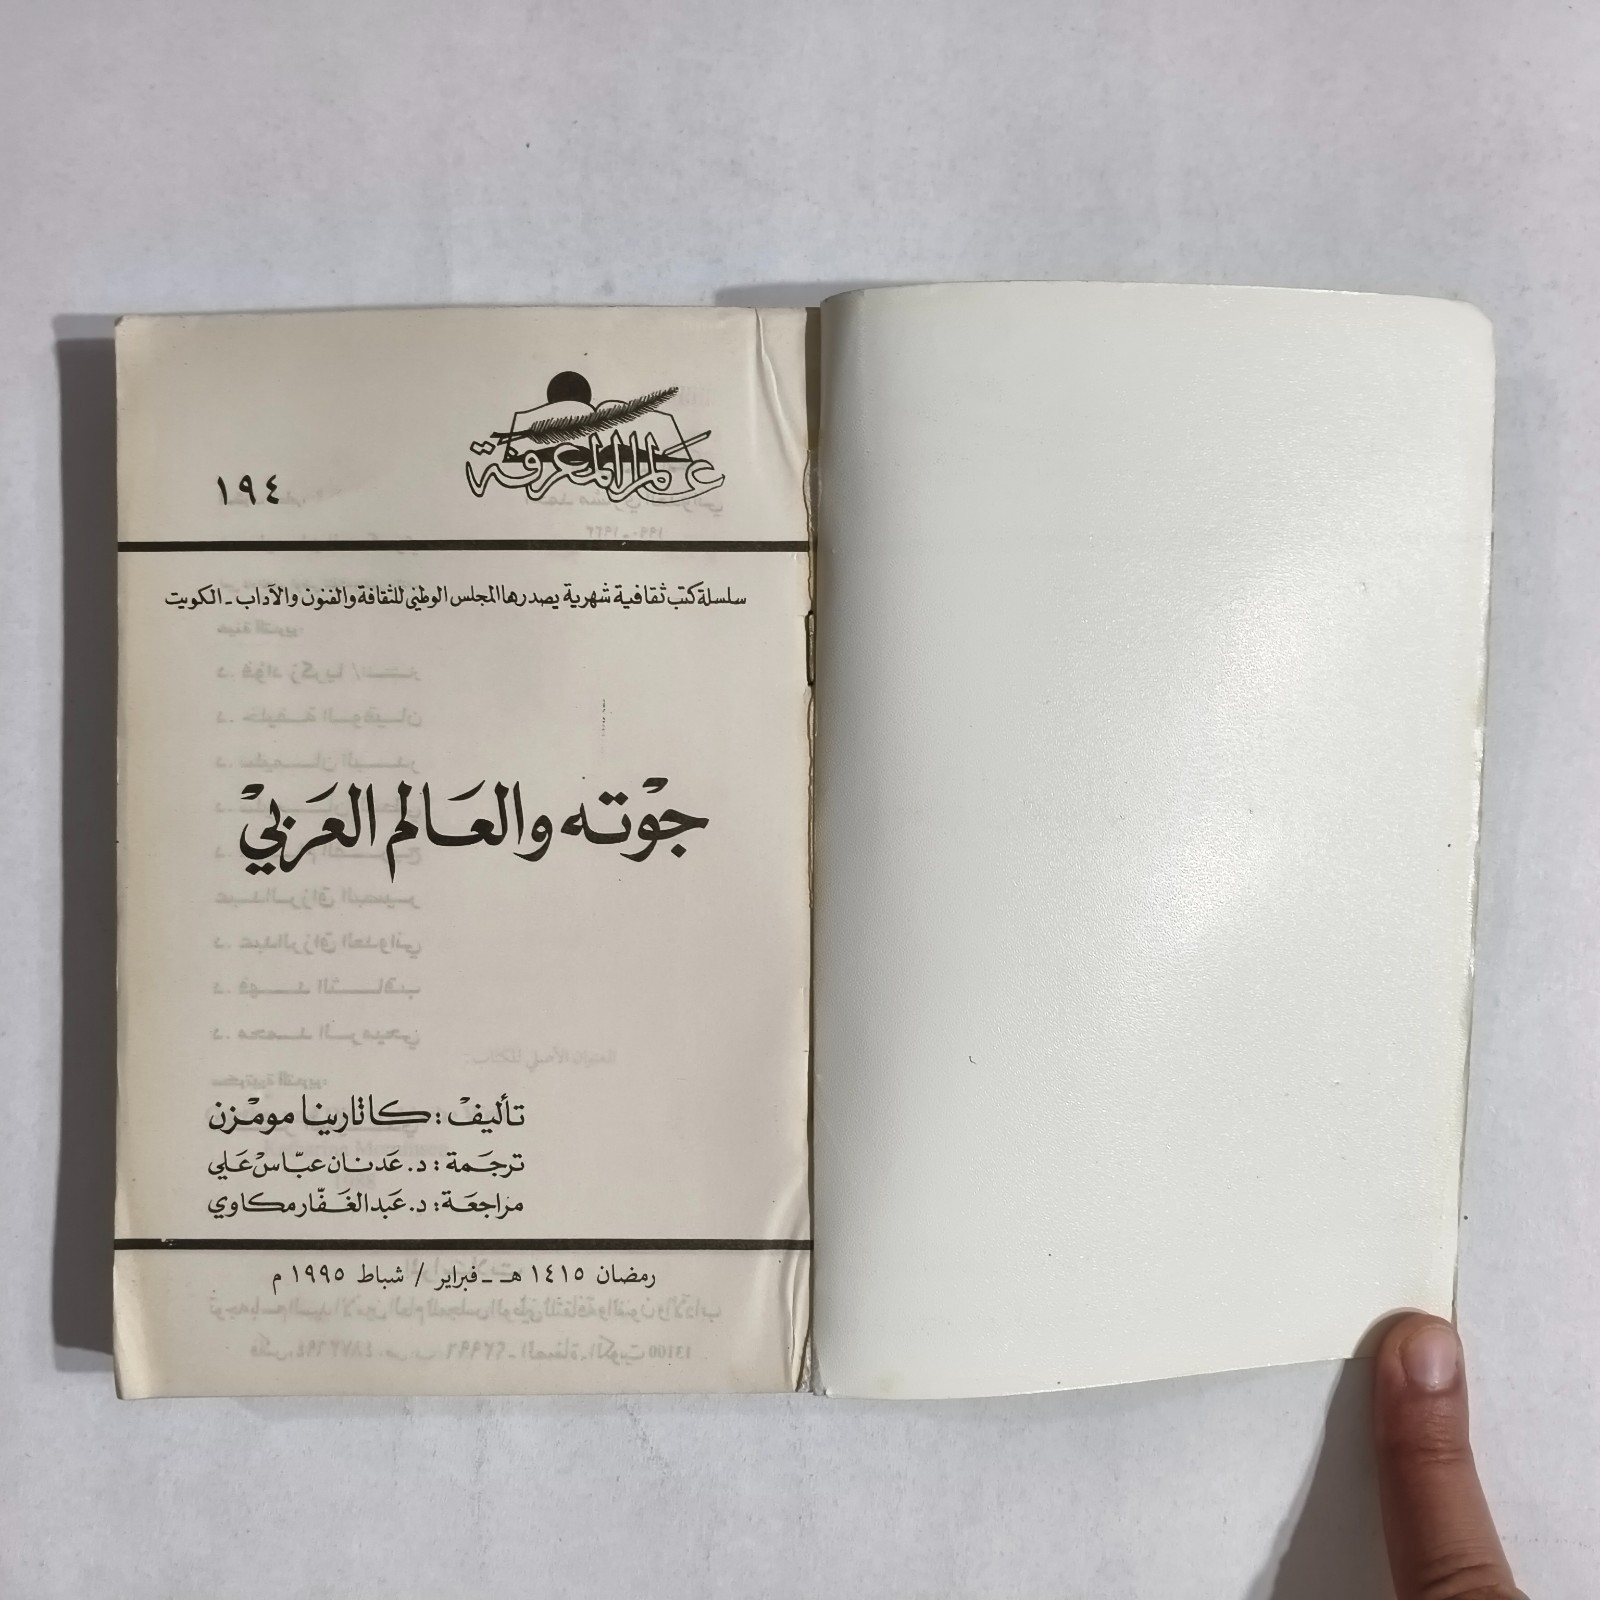 عالم المعرفة
١٩٤
سلسلة كتب ثقافية شهرية يصدرها المجلس الوطني للثقافة والفنون والآداب - الكويت
جوته والعَالم العَربي
تأليف : كاتارينا مومزن
ترجَمة : د. عَدنان عبّاس عَلي
مراجعَة : د. عَبد الغَفّار مكاوي
رمضان ١٤١٥ هـ - فبراير / شباط ١٩٩٥ م